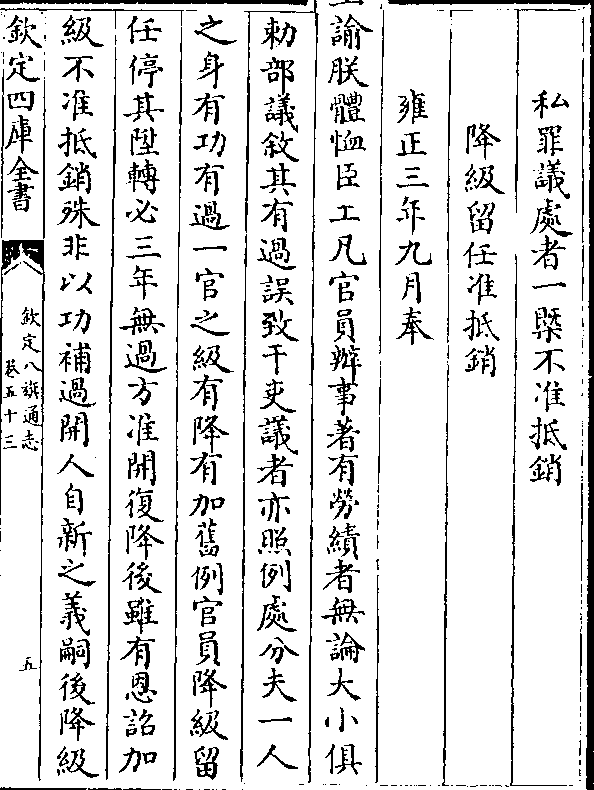 私罪議處者一槩不准抵銷
降級留任准抵銷
雍正三年九月奉
上諭朕體恤臣工凡官員辦事著有勞績者無論大小俱
勅部議敘其有過誤致干吏議者亦照例處分夫一人
之身有功有過一官之級有降有加舊例官員降級留
任停其陞轉必三年無過方准開復降後雖有恩詔加
級不准抵銷殊非以功補過開人自新之義嗣後降級
欽定四庫全書
欽定八旗通志
卷五十三
五